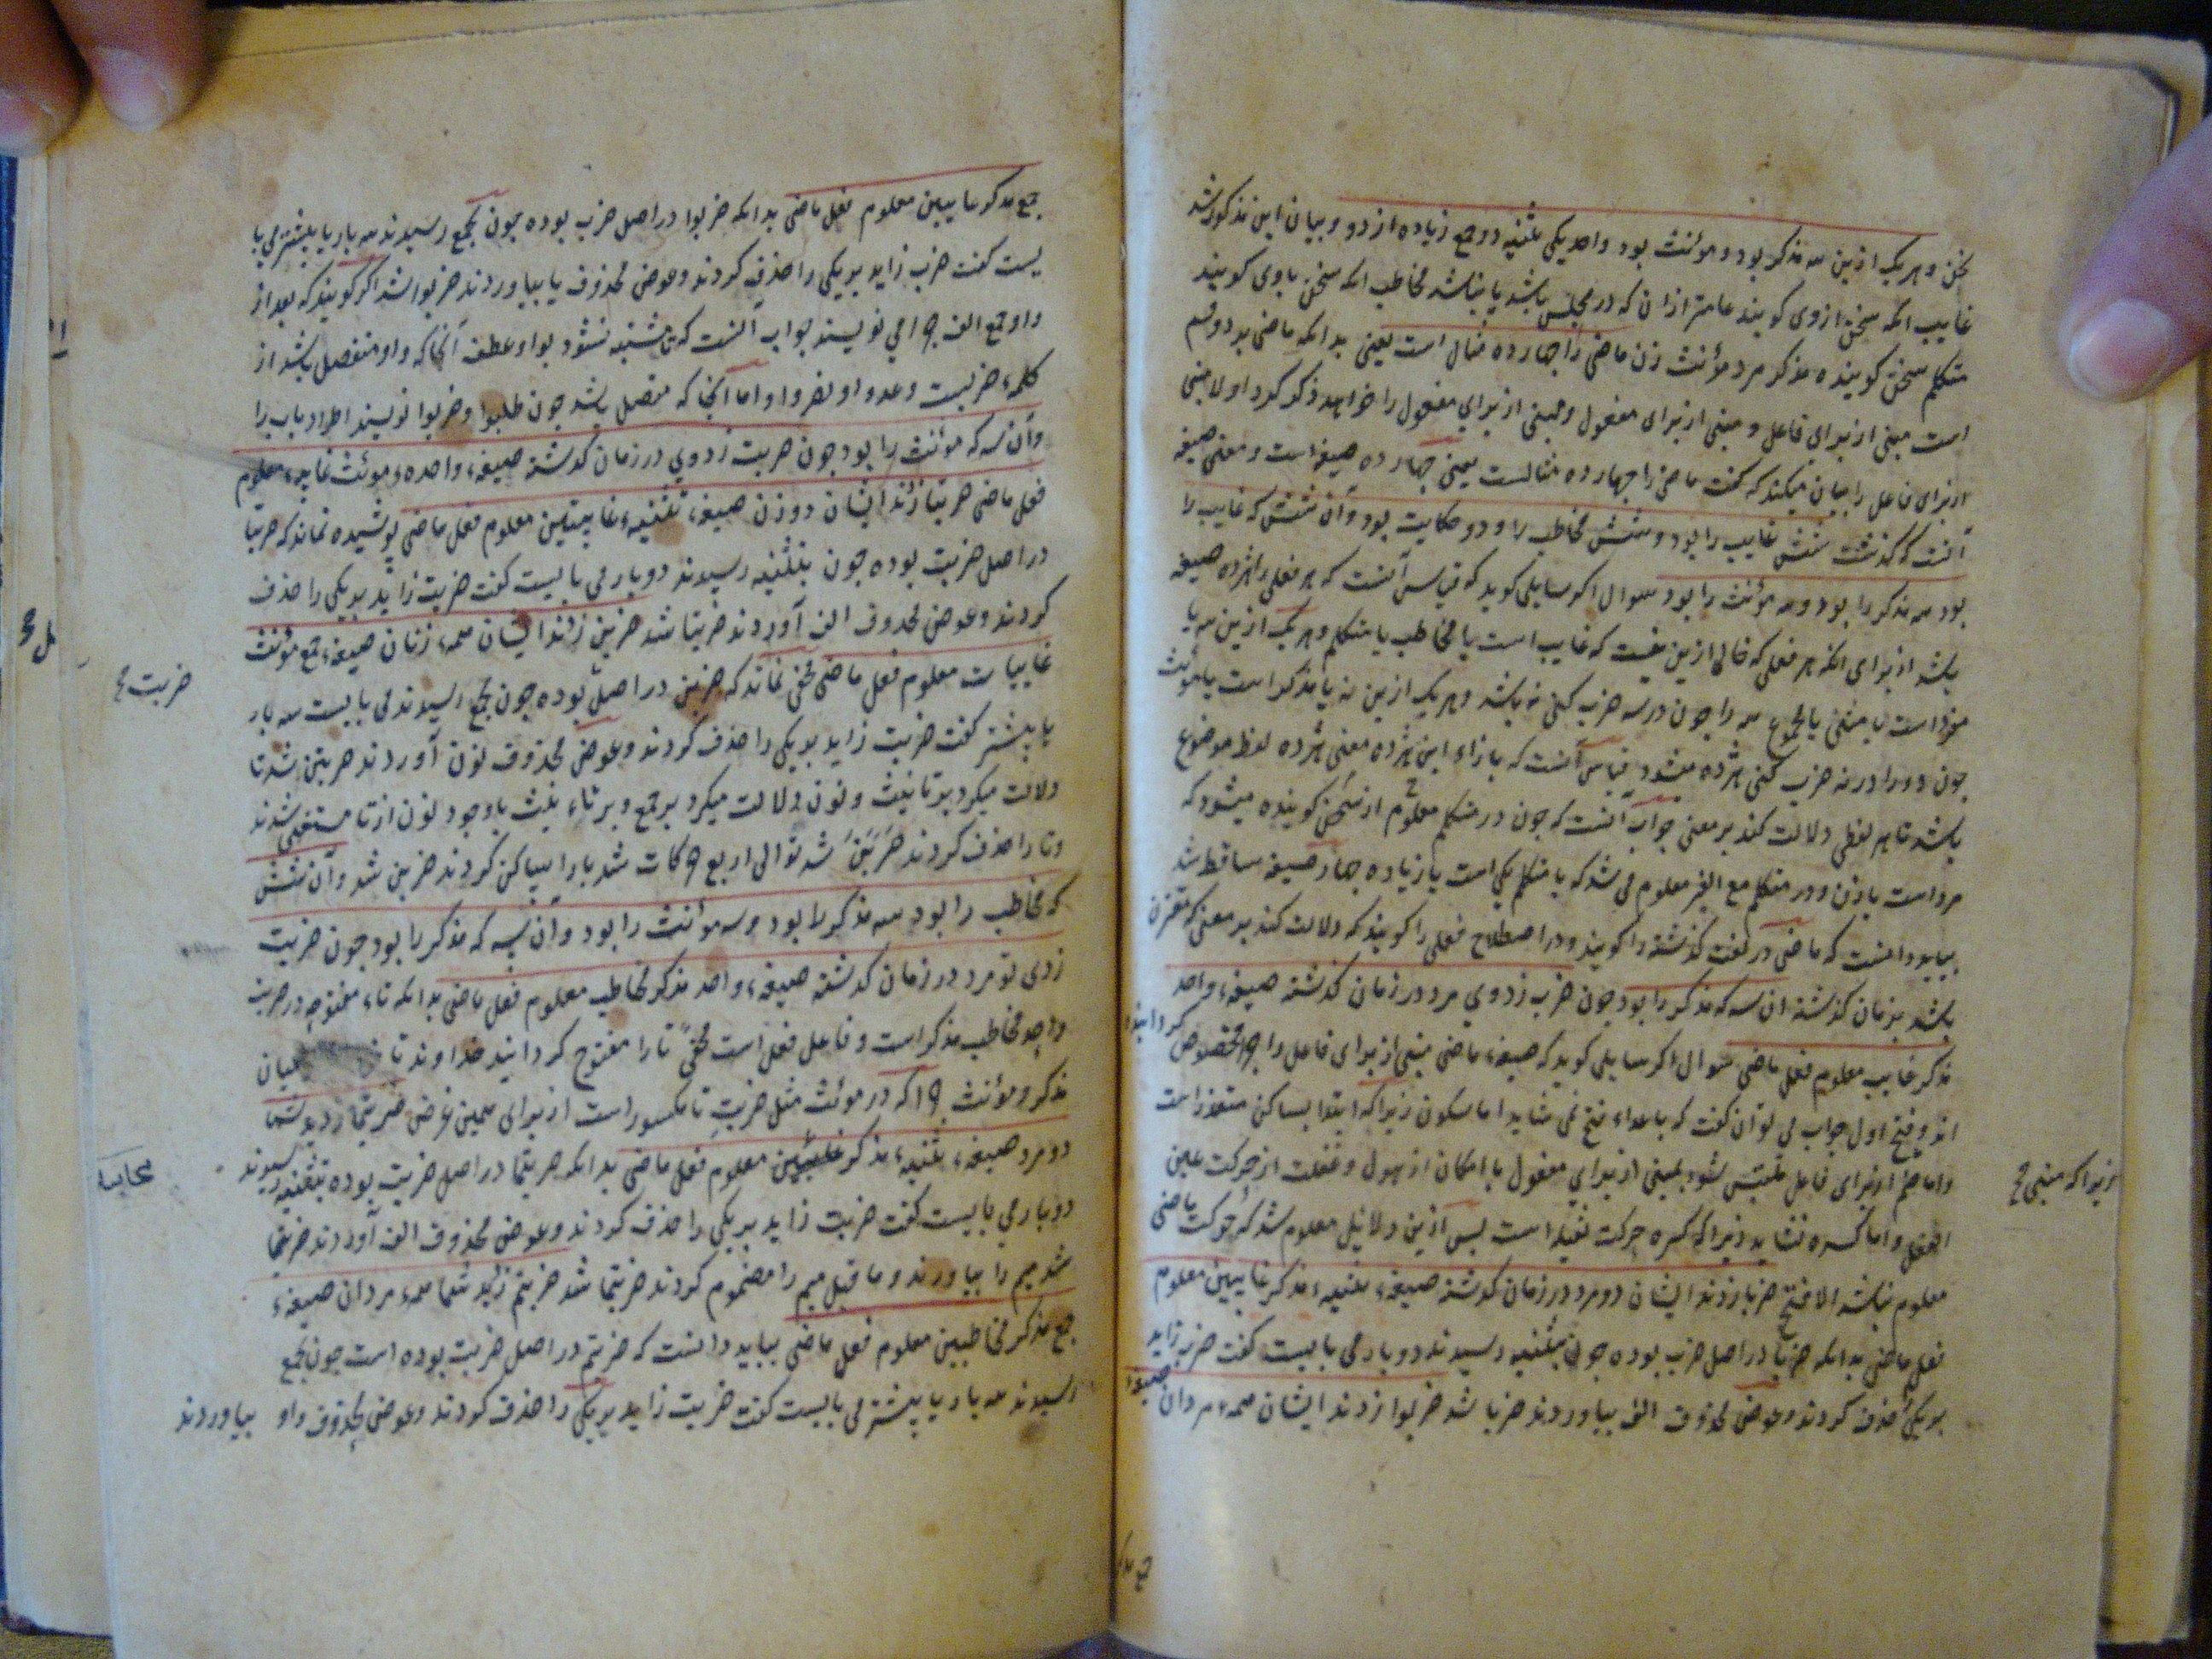 سخن و هر یک ازین سه مذکر بود و مونث بود واحد یکی تثنیه دو جمع زیاده از دو و بیان این مذکور شد
غایب انکه سخن از وی کویند عامتر ازان که در مجلس باشد یا نباشد مخاطب انکه سخن باوی کویند
متکلم سخن کوینده مذکر مرد مؤنث زن ماضی را چهارده مثال است یعنی بدانکه ماضی بر دو قسم
است مبنی از برای فاعل و مبنی از برای مفعول و مبنی از برای مفعول را خواهد ذکر کرد اولا مبنی
از برای فاعل را بیان میکند که کفت ماضی را چهارده مثالست یعنی چهارده صیغه است و معنی صیغه
آنست که کذشت شش غایب را بود و شش مخاطب را و دو حکایت بود و آن شش که غایب را
بود سه مذکر را بود و سه مؤنث را بود سوال اکر سایلی کوید که قیاس آنست که هر فعلی را هژده صیغه
باشد از برای انکه هر فعلی که خالی ازین نیست که غایب است یا مخاطب یا متکلم و هر یک ازین سه یا
مفرد است یا مثنی یا مجموع سه را چون در سه ضرب کنی نه باشد و هر یک ازین نه یا مذکر است یا مونث
چون دو را در نه ضرب کنی هژده میشود قیاس آنست که بازاء این هژده معنی هژده لفظ موضوع
باشد تا هر لفظی دلالت کند بر معنی جواب آنست که چون در متکلم معلوم از سخن کوینده میشود که
مرد است یا زن و در متکلم مع الغیر معلوم می شد که یا متکلم یکی است یا زیاده چهار صیغه ساقط شد
بباید دانست که ماضی در لغت کذشته را کویند و در اصطلاح فعلی را کویند که دلالت کند بر معنی که مقترن
باشد بزمان کذشته ان سه که مذکر را بود چون ضرب زد وی مرد در زمان کذشته صیغهء واحد
مذکر غایب معلوم فعل ماضی سوال اکر سایلی کوید که صیغهء ماضی مبنی از برای فاعل را چرا مخصوص کردانیده
اند بفتح اول جواب می توان کفت که باعداء فتح نمی شاید اما سکون زیرا که ابتدا بساکن متعذر است
و اما ضم از برای فاعل ملتبس شود بمبنی از برای مفعول با امکان از هول و غفلت از حرکت عین
زیرا که مبنی صح
الفعل و اما کسره نشاید زیرا که کسره حرکت ثقیله است بس ازین دلایل معلوم شد که حرکت ماضی
معلوم نباشد الا فتح ضربا زدند ایشان دو مرد در زمان کذشته صیغهء تثنیهء مذکر غایبین معلوم
فعل ماضی بدانکه ضربا در اصل ضرب بوده چون بتثنیه رسیدند دو بار می بایست کفت ضرب زاید
بر یکی حذف کردند و عوض محذوف الف بیاوردند ضربا شد ضربوا زدند ایشان همهء مردان صیغهء
جمع مذکر
جمع مذکر غایبین معلوم فعل ماضی بدانکه ضربوا در اصل ضرب بوده چون بجمع رسیدند سه بار یا بیشتر می با
یست کفت ضرب زاید بر یکی را حذف کردند و عوض محذوف یا بیاوردند ضربوا شد اکر کویند که بعد از
واو جمع الف چرا می نویسند جواب آنست که تا مشتبه نشود بواو عطف آنجا که واو منفصل باشد از
کلمهء ضربست و عدوا و نصروا و اما آنجا که متصل باشد چون طلبوا و ضربوا نویسند اطراد باب را
و آن سه که مونث را بود چون ضربت زد وی در زمان کذشته صیغهء واحدهء مونث غایبهء معلوم
فعل ماضی ضربتا زدند ایشان دو زن صیغهء تثنیهء غایبتین معلوم فعل ماضی پوشیده نماند که ضربتا
در اصل ضربت بوده چون بتثنیه رسیدند دو بار می بایست کفت ضربت زاید بر یکی را حذف
کردند و عوض محذوف الف آوردند ضربتا شد ضربن زدند ایشان همهء زنان صیغهء جمع مؤنث
غایبات معلوم فعل ماضی مخفی نماند که ضربن در اصل بوده چون بجمع رسیدند می بایست سه بار
ضربت صح
یا بیشتر کفت ضربت زاید بر یکی را حذف کردند و عوض محذوف نون آوردند ضربتن شد تا
دلالت میکرد بر تانیث و نون دلالت میکرد بر جمع و بر تاء نیث با وجود نون از تا مستغنی شدند
و تا را حذف کردند ضَرَبَنَ شد توالی اربع حرکات شد با را ساکن کردند ضربن شد و آن شش
که مخاطب را بود سه مذکر را بود و سه مونث را بود و آن سه که مذکر را بود چون ضربت
زدی تو مرد در زمان کذشته صیغهء واحد مذکر مخاطب معلوم فعل ماضی بدانکه تاء مفتوحه در ضربت
واحد مخاطب مذکر است و فاعل فعل است تا را مفتوح کردانیدند میان
مذکر و مؤنث چرا که در موئث مثل ضربتِ تا مکسور است از برای همین غرض ضربتما زدید شما
دو مرد صیغهء تثنیهء مذکر معلوم فعل ماضی بدانکه ضربتما در اصل ضربت بوده بتثنیه رسیدند
دو بار می بایست کفت ضربت زاید بر یکی را حذف کردند و عوض محذوف الف آوردند ضربتما
شد میم را بیاوردند و ما قبل میم را مضموم کردند ضربتما شد ضربتم زدید شما همهء مردان صیغهء
جمع مذکر مخاطبین معلوم فعل ماضی بباید دانست که ضربتم در اصل ضربت بوده است چون بجمع
رسیدند سه بار یا بیشتر می بایست کفت ضربت زاید بر یکی را حذف کردند و عوض محذوف واو بیاوردند